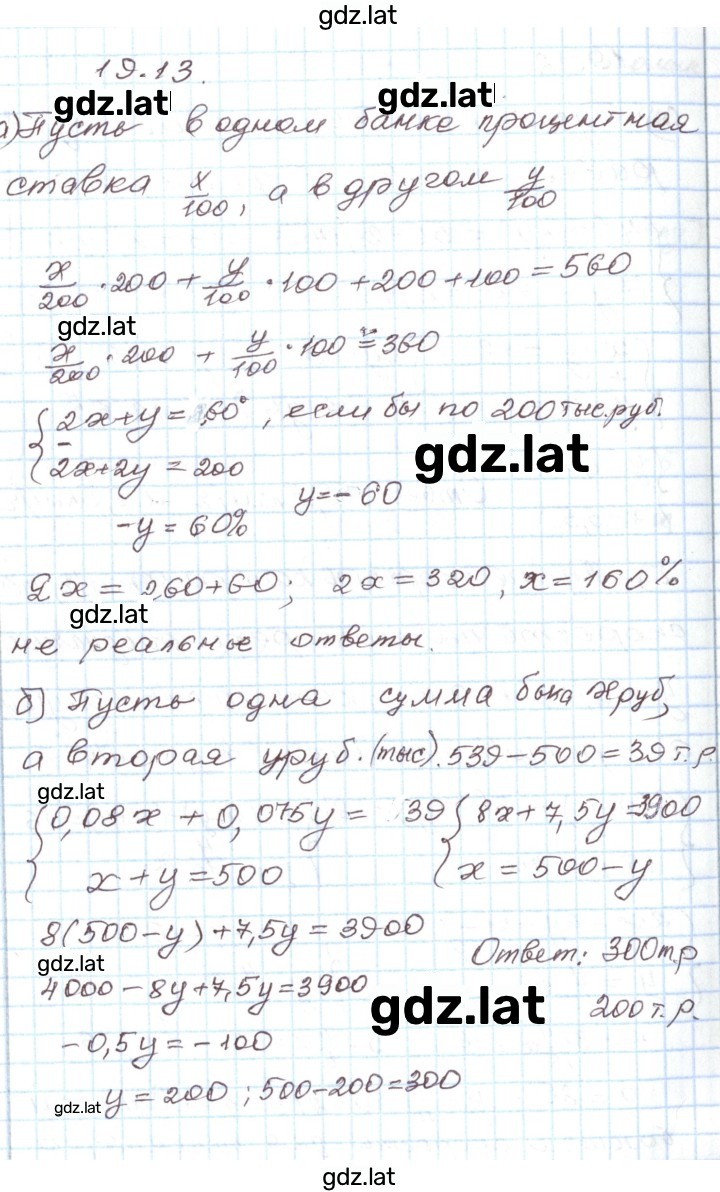 gdz.lat
19.13.
gdz.lat gdz.lat
а) Пусть в одном банке процентная
ставка x/100, а в другом y/100
x/200 · 200 + y/100 · 100 + 200 + 100 = 560
gdz.lat
x/200 · 200 + y/100 · 100 = 360
{ 2x+y = 60, если бы по 200 тыс.руб.
gdz.lat
2x+2y = 200
y = - 60
-y = 60%
2x = 260+60; 2x = 320, x = 160%
gdz.lat
не реальные ответы.
б) Пусть одна сумма была x руб,
а вторая y руб. (тыс). 539-500=39 т.р.
gdz.lat
{ 0,08x + 0,075y = 39 { 8x + 7,5y = 3900
x + y = 500 x = 500 - y
8(500-y) + 7,5y = 3900
Ответ: 300 т.р
gdz.lat
4000 - 8y + 7,5y = 3900
gdz.lat
200 т.р.
-0,5y = -100
gdz.lat y = 200; 500-200=300
gdz.lat